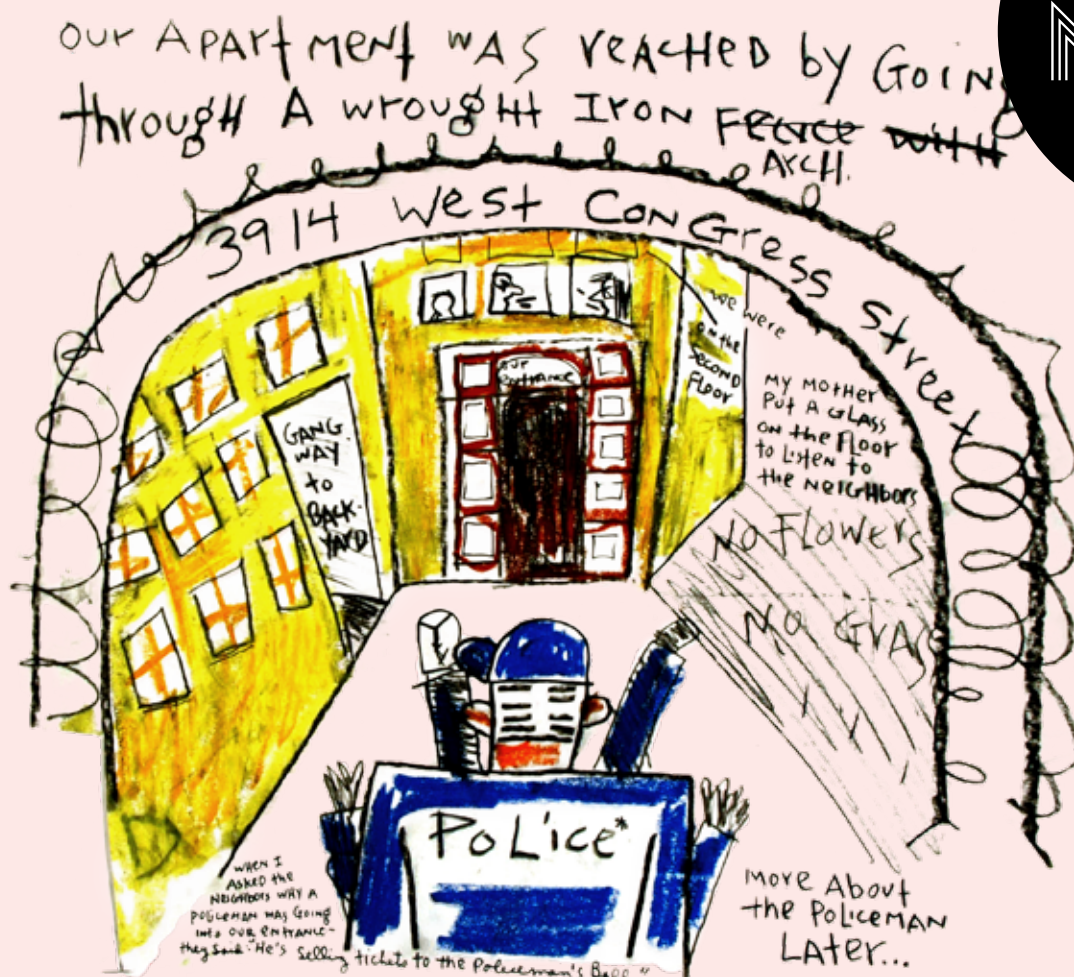 our Apartment was reached by Going
through A wrought Iron Fence with
Arch.
3914 West Congress Street
our
Entrance
we were
on the
Second
Floor
GANG
WAY
to
BACK-
YARD
My Mother
Put A GLASS
on the Floor
to Listen to
the Neighbors
No Flowers
No Gras
Police*
When I
Asked the
Neighbors why a
Policeman was Going
into our entrance-
they said "He's selling tickets to the Policeman's Ball"
More About
the Policeman
Later...